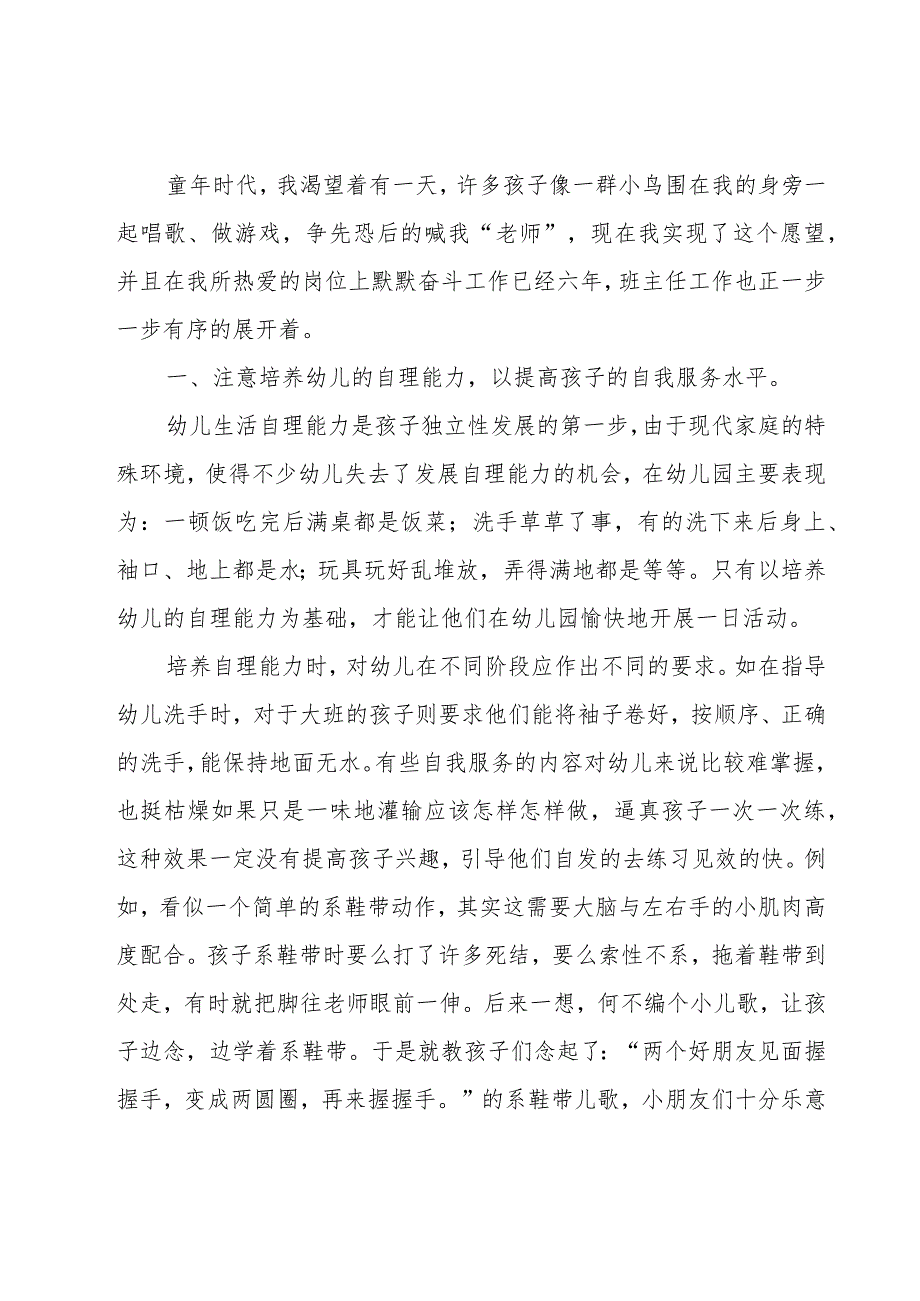 童年时代，我渴望着有一天，许多孩子像一群小鸟围在我的身旁一
起唱歌、做游戏，争先恐后的喊我“老师”，现在我实现了这个愿望，
并且在我所热爱的岗位上默默奋斗工作已经六年，班主任工作也正一步
一步有序的展开着。
一、注意培养幼儿的自理能力，以提高孩子的自我服务水平。
幼儿生活自理能力是孩子独立性发展的第一步，由于现代家庭的特
殊环境，使得不少幼儿失去了发展自理能力的机会，在幼儿园主要表现
为：一顿饭吃完后满桌都是饭菜；洗手草草了事，有的洗下来后身上、
袖口、地上都是水；玩具玩好乱堆放，弄得满地都是等等。只有以培养
幼儿的自理能力为基础，才能让他们在幼儿园愉快地开展一日活动。
培养自理能力时，对幼儿在不同阶段应作出不同的要求。如在指导
幼儿洗手时，对于大班的孩子则要求他们能将袖子卷好，按顺序、正确
的洗手，能保持地面无水。有些自我服务的内容对幼儿来说比较难掌握，
也挺枯燥如果只是一味地灌输应该怎样怎样做，逼真孩子一次一次练，
这种效果一定没有提高孩子兴趣，引导他们自发的去练习见效的快。例
如，看似一个简单的系鞋带动作，其实这需要大脑与左右手的小肌肉高
度配合。孩子系鞋带时要么打了许多死结，要么索性不系，拖着鞋带到
处走，有时就把脚往老师眼前一伸。后来一想，何不编个小儿歌，让孩
子边念，边学着系鞋带。于是就教孩子们念起了：“两个好朋友见面握
握手，变成两圆圈，再来握握手。”的系鞋带儿歌，小朋友们十分乐意